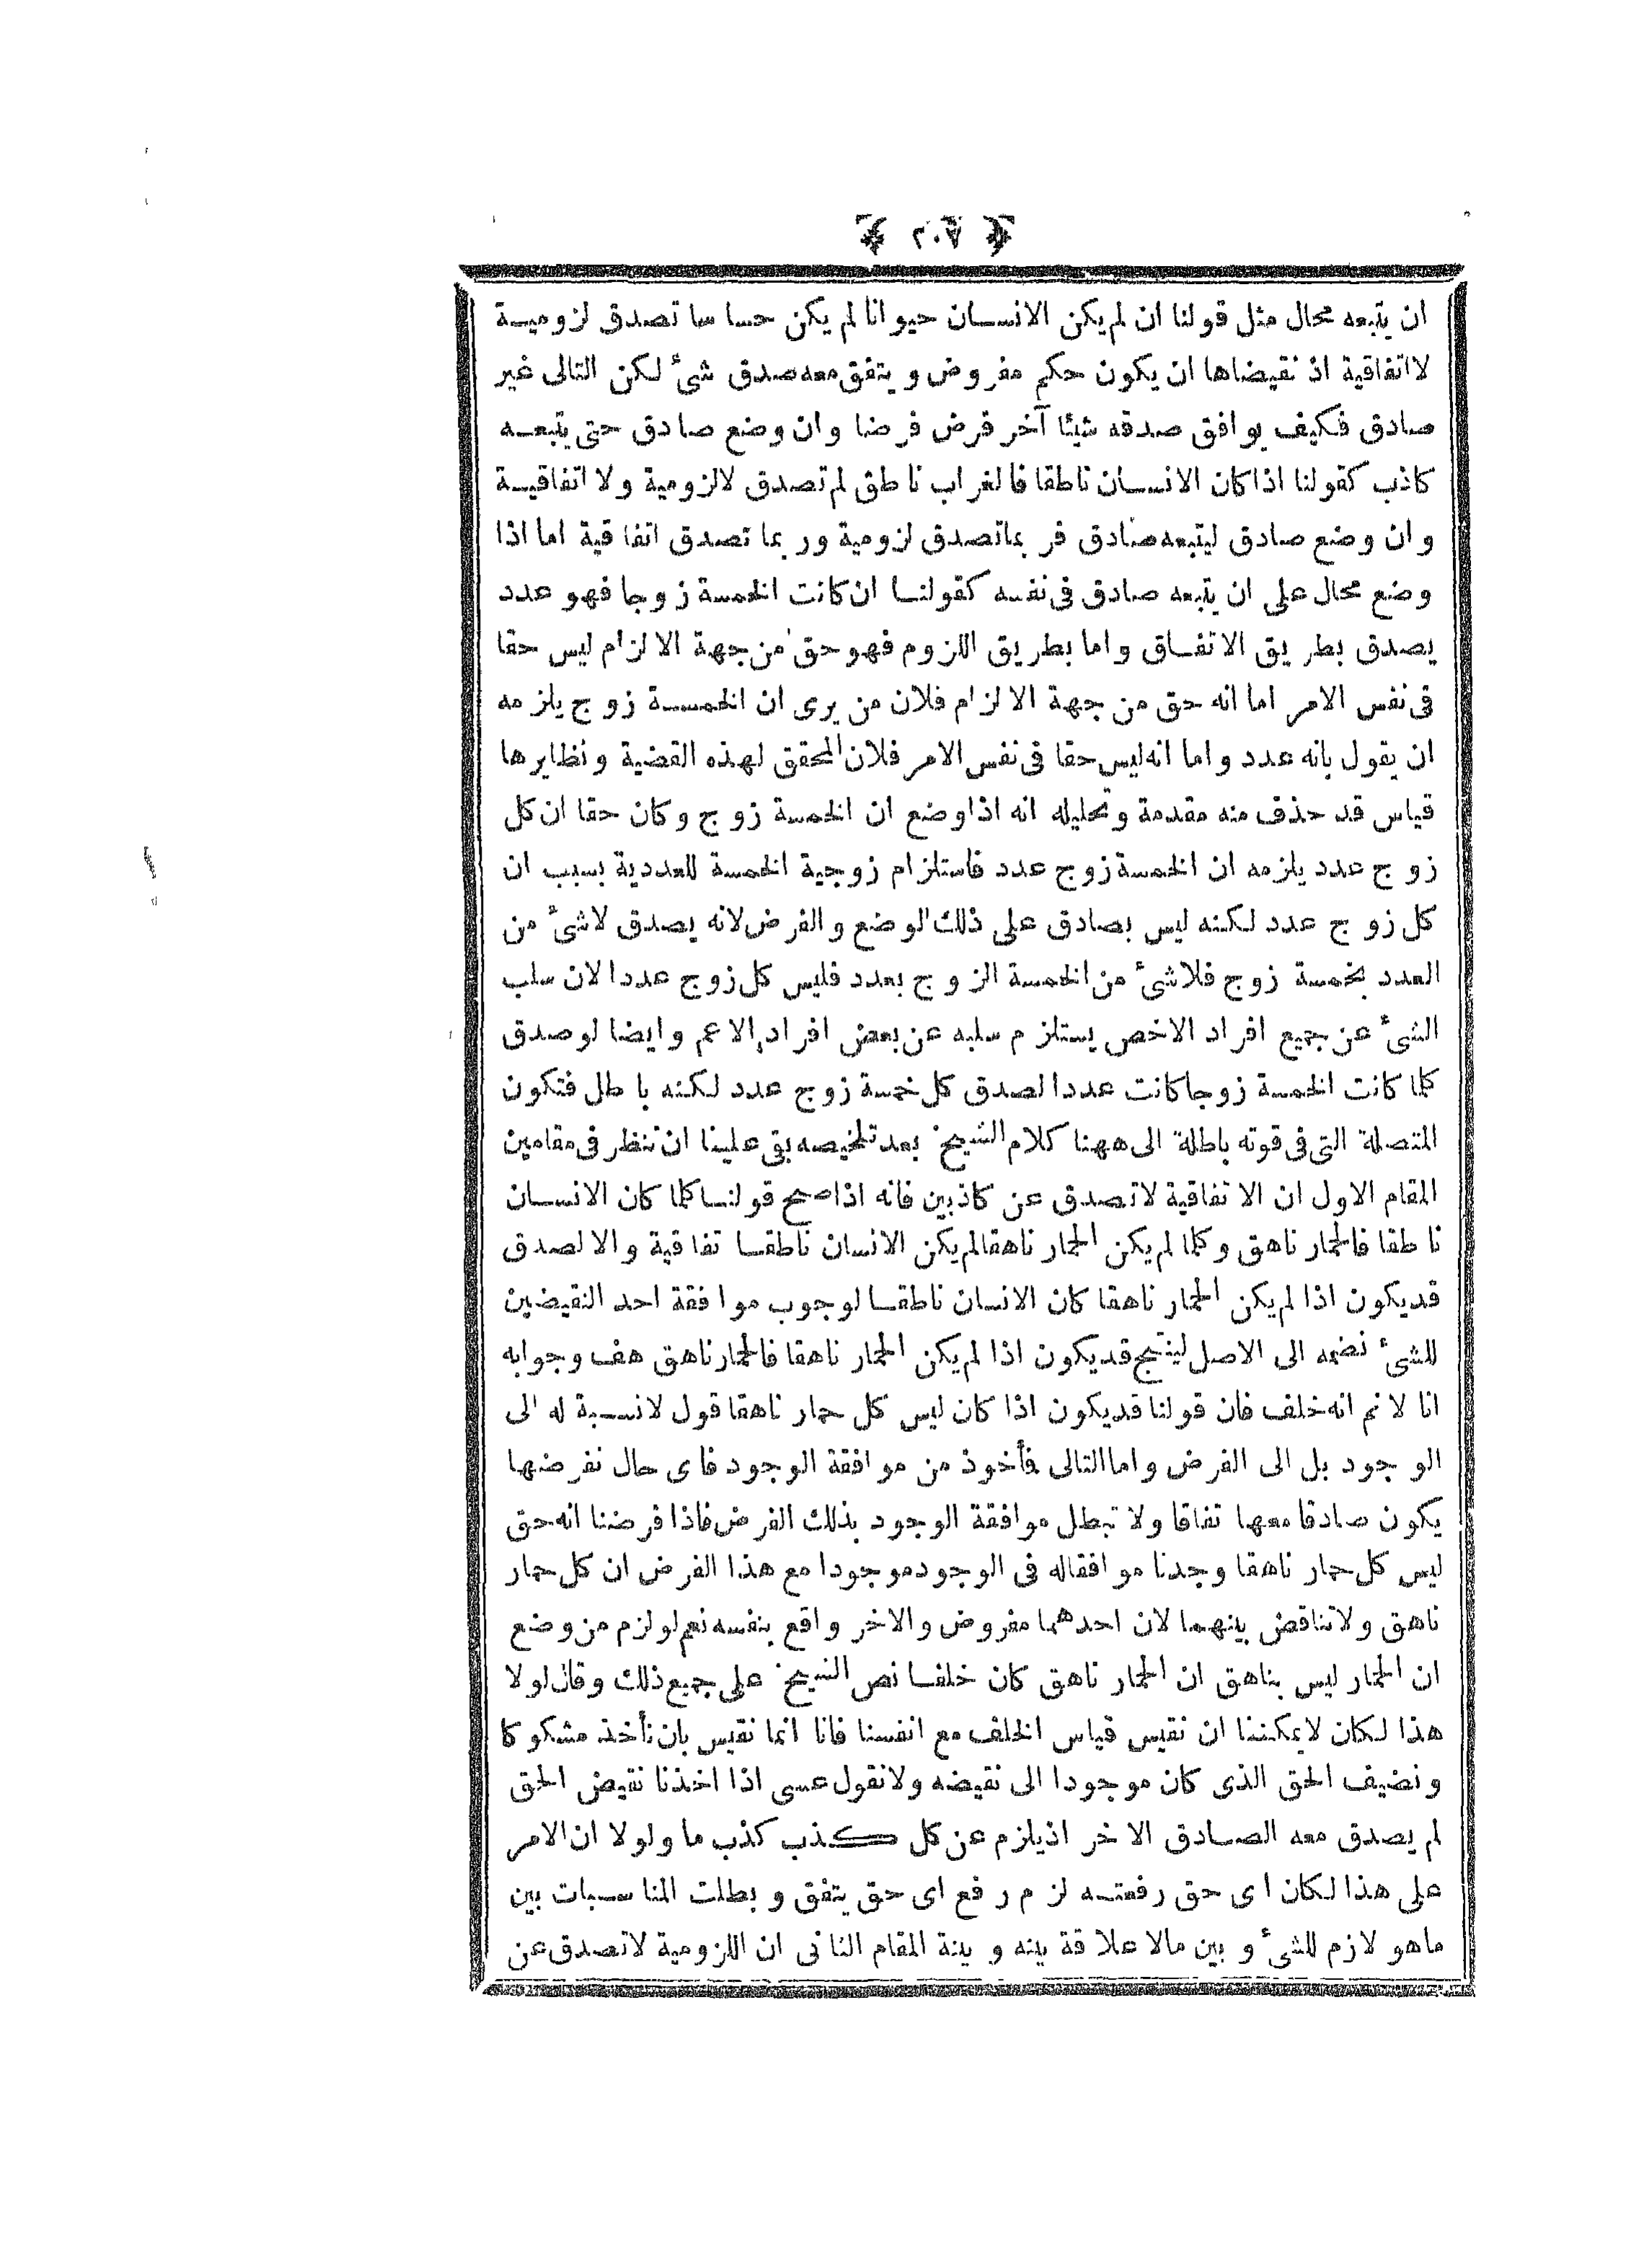 ﴿ ٢٠٧ ﴾
ان يتبعه محال مثل قولنا ان لم يكن الانسان حيوانا لم يكن حساسا تصدق لزومية
لا اتفاقية اذ نقيضاها ان يكون حكم مفروض ويتفق معه صدق شئ لكن التالى غير
صادق فكيف يوافق صدقه شيئا آخر فرض فرضا وان وضع صادق حتى يتبعه
كاذب كقولنا اذا كان الانسان ناطقا فالغراب ناطق لم تصدق لا لزومية ولا اتفاقية
وان وضع صادق ليتبعه صادق فربما تصدق لزومية وربما تصدق اتفاقية اما اذا
وضع محال على ان يتبعه صادق فى نفسه كقولنا ان كانت الخمسة زوجا فهو عدد
يصدق بطريق الاتفاق واما بطريق اللزوم فهو حق من جهة الالزام ليس حقا
فى نفس الامر اما انه حق من جهة الالزام فلان من يرى ان الخمسة زوج يلزمه
ان يقول بانه عدد واما انه ليس حقا فى نفس الامر فلان المحقق لهذه القضية ونظايرها
قياس قد حذف منه مقدمة وتحليله انه اذا وضع ان الخمسة زوج وكان حقا ان كل
زوج عدد يلزمه ان الخمسة زوج عدد فاستلزام زوجية الخمسة للعددية بسبب ان
كل زوج عدد لكنه ليس بصادق على ذلك الوضع والفرض لانه يصدق لا شئ من
العدد بخمسة زوج فلا شئ من الخمسة الزوج بعدد فليس كل زوج عددا لان سلب
الشئ عن جميع افراد الاخص يستلزم سلبه عن بعض افراد الاعم وايضا لو صدق
كلما كانت الخمسة زوجا كانت عددا لصدق كل خمسة زوج عدد لكنه باطل فتكون
المتصلة التى فى قوته باطلة الى ههنا كلام الشيخ بعد تلخيصه بقى علينا ان ننظر فى مقامين
المقام الاول ان الاتفاقية لا تصدق عن كاذبين فانه اذا صح قولنا كلما كان الانسان
ناطقا فالحمار ناهق وكلما لم يكن الحمار ناهقا لم يكن الانسان ناطقا تفاقية والا لصدق
قد يكون اذا لم يكن الحمار ناهقا كان الانسان ناطقا لوجوب موافقة احد النقيضين
للشئ نضمه الى الاصل لينتج قد يكون اذا لم يكن الحمار ناهقا فالحمار ناهق هف وجوابه
انا لا نم انه خلف فان قولنا قد يكون اذا كان ليس كل حمار ناهقا قول لا نسبة له الى
الوجود بل الى الفرض واما التالى فأخوذ من موافقة الوجود فاى حال نفرضها
يكون صادقا معها تفاقا ولا تبطل موافقة الوجود بذلك الفرض فاذا فرضنا انه حق
ليس كل حمار ناهقا وجدنا موافقا له فى الوجود موجودا مع هذا الفرض ان كل حمار
ناهق ولا تناقض بينهما لان احدهما مفروض والاخر واقع بنفسه نعم لو لزم من وضع
ان الحمار ليس بناهق ان الحمار ناهق كان خلفا نص الشيخ على جميع ذلك وقال لو لا
هذا لكان لا يمكننا ان نقيس قياس الخلف مع انفسنا فانا انما نقيس بان نأخذ مشكوكا
ونضيف الحق الذى كان موجودا الى نقيضه ولا نقول عسى اذا اخذنا نقيض الحق
لم يصدق معه الصادق الاخر اذ يلزم عن كل كذب كذب ما ولولا ان الامر
على هذا لكان اى حق رفعته لزم رفع اى حق يتفق وبطلت المناسبات بين
ما هو لازم للشئ وبين مالا علاقة بينه وبينه المقام الثانى ان اللزومية لا تصدق عن